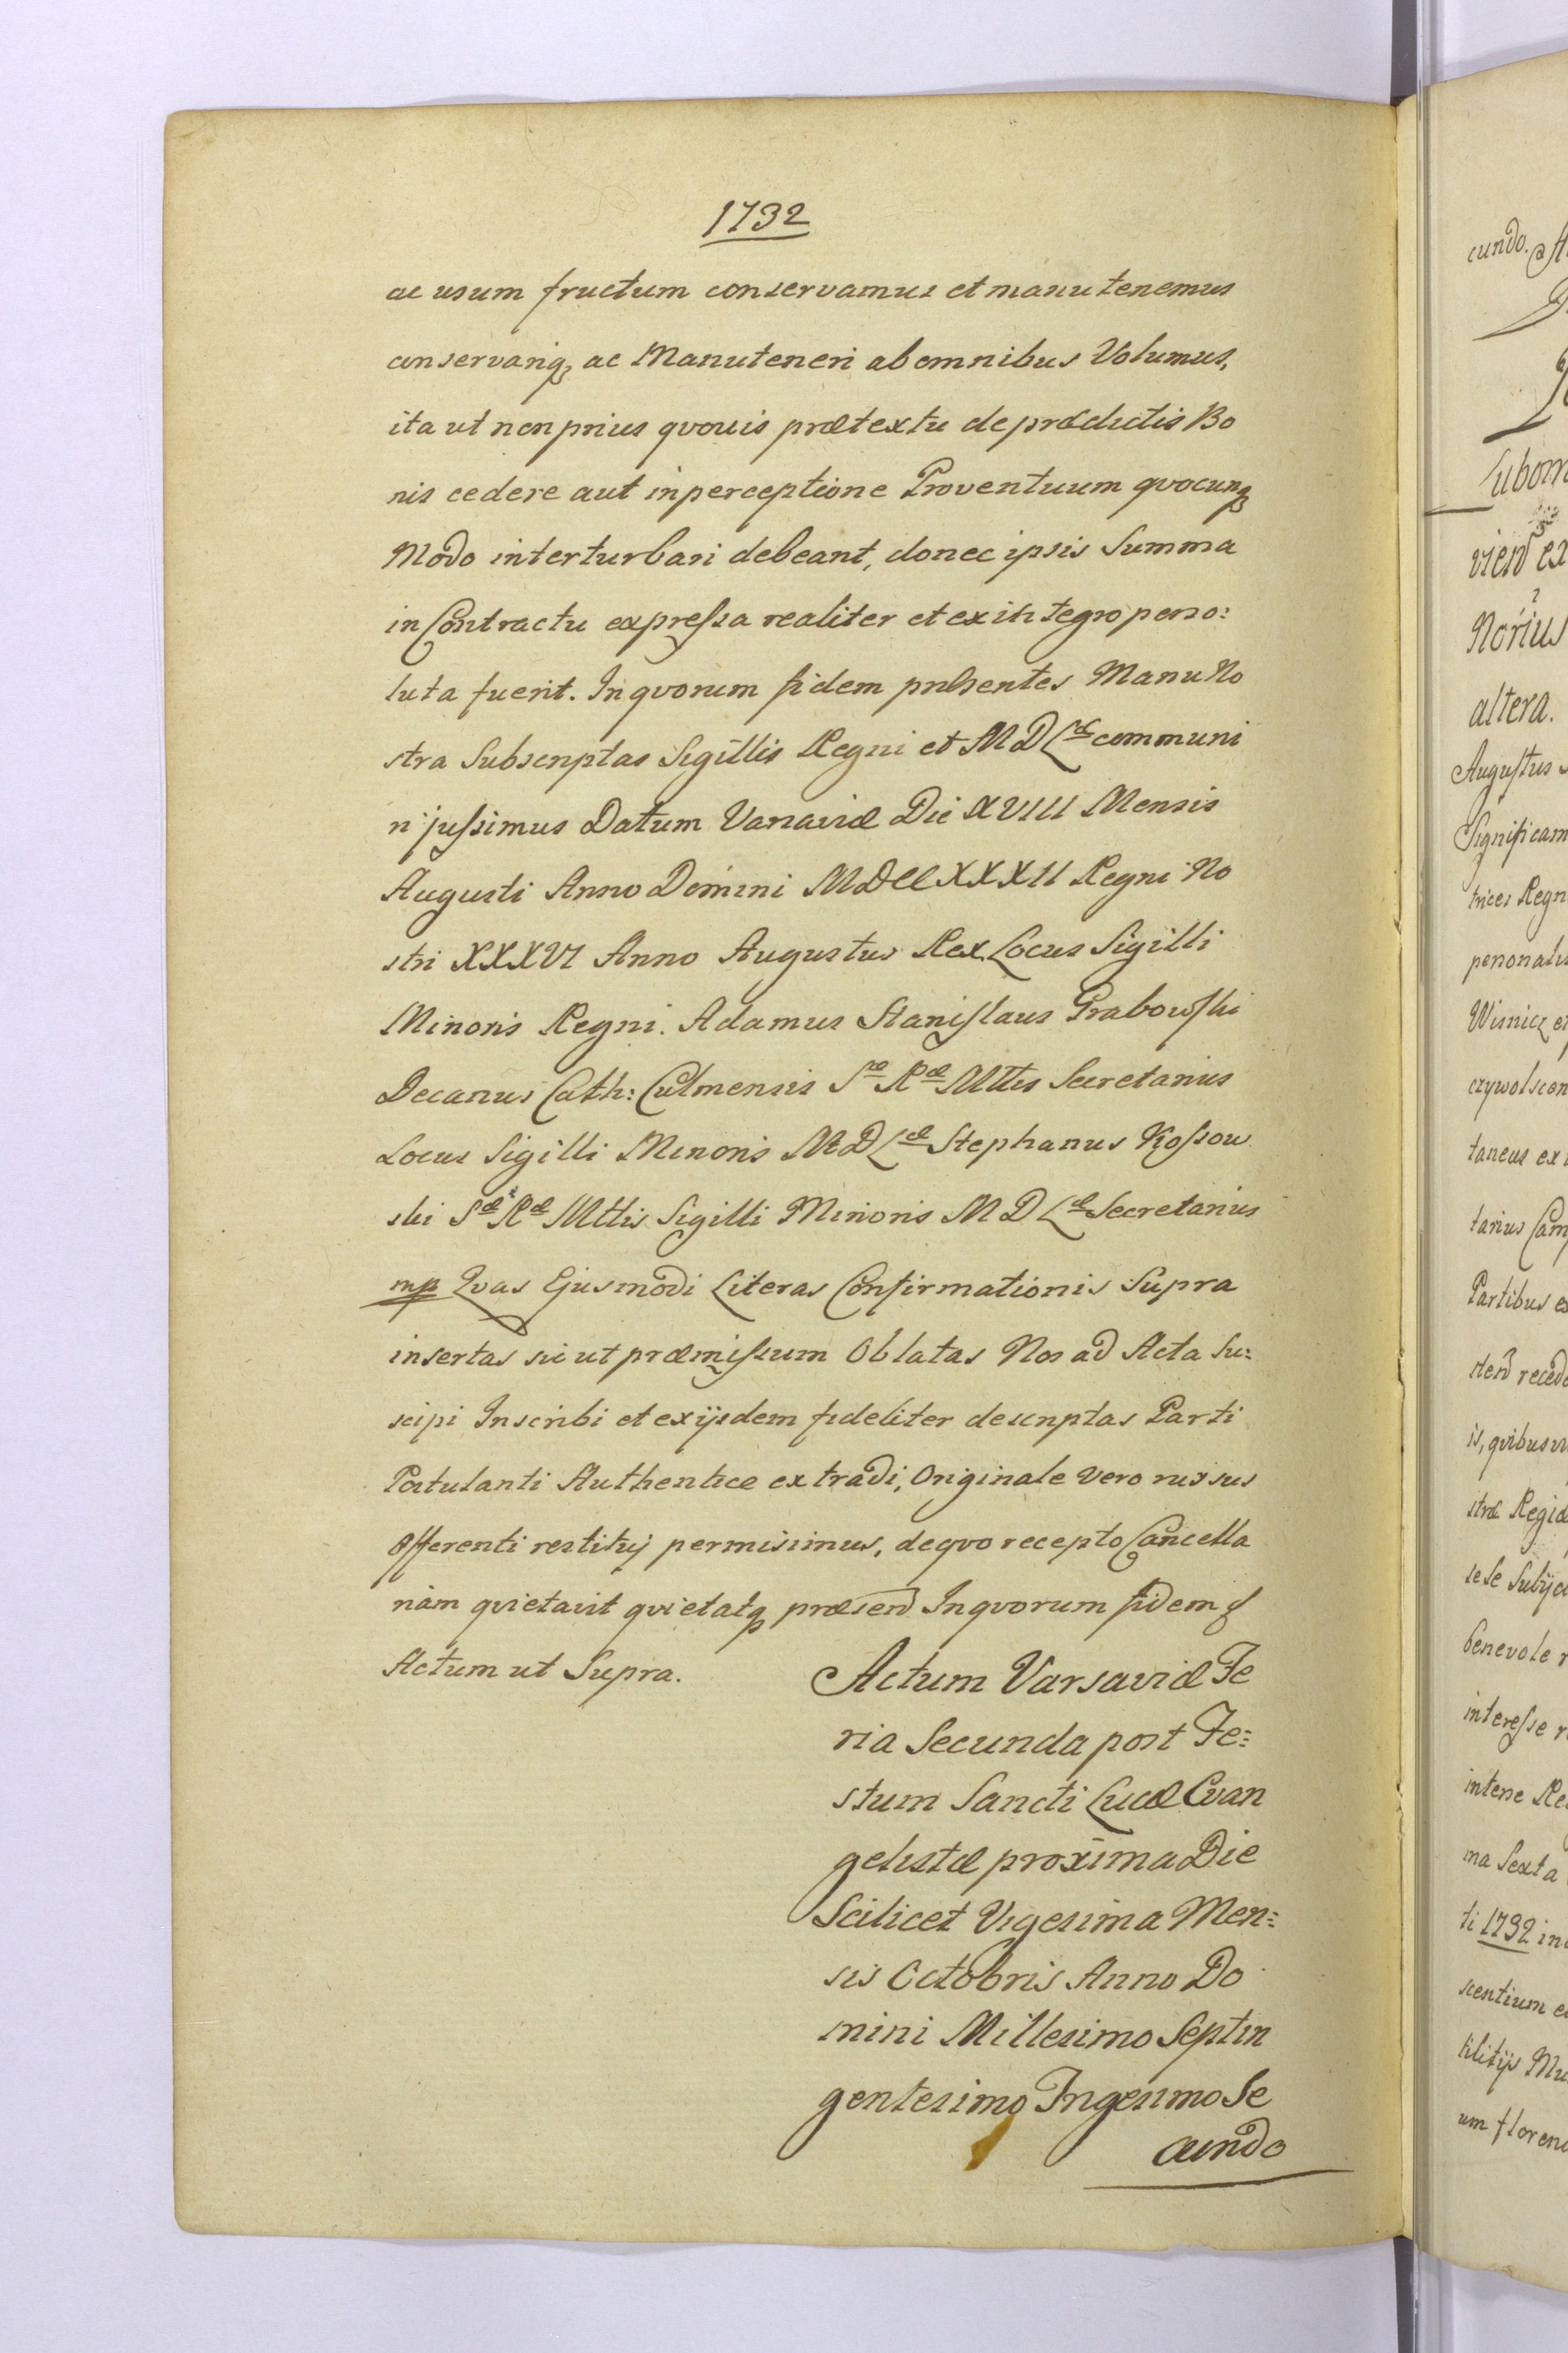 1732
ac usum fructum conservamus et manutenemus
conservariq₃ ac Manuteneri ab omnibus Volumus,
ita ut non prius qvovis prætextu de prædictis Bo
nis cedere aut in perceptione Proventuum qvocunq₃
Modo interturbari debeant, donec ipsis Summa
in Contractu expressa realiter et ex integro perso:
luta fuerit. In qvorum fidem pnlsentes Manu No
stra Subscriptas Sigillis Regni et M D Læ communi
ri jussimus Datum Varsaviæ Die XVIII Mensis
Augusti Anno Domini MDCCXXXII Regni No
stri XXXVI Anno Augustus Rex Locus Sigilli
Minoris Regni. Adamus Stanislaus Grabowski
Decanus Cath: Culmensis Sæ Ræ Mttis Secretarius
Locus Sigilli Minoris M D Læ Stephanus Kossow
ski Sæ Ræ Mttis Sigilli Minoris M D Læ Secretarius
mp Qvas Ejusmodi Literas Confirmationis Supra
insertas sic ut præmissum Oblatas Nos ad Acta Su:
scipi Inscribi et ex ijsdem fideliter descriptas Parti
Postulanti Authentice extradi, Originale vero rursus
Offerenti restituj permisimus, de qvo recepto Cancella
riam qvietavit qvietatq₃ præsen In qvorum fidem
Actum ut Supra.
Actum Varsaviæ Fe
ria Secunda post Fe:
stum Sancti Lucæ Evan
gelistæ proxima Die
Scilicet Vigesima Men:
sis Octobris Anno Do
mini Millesimo Septin
gentesimo Trigesimo Se
cundo
cundo.
Lubom
vien ex
norius
altera.
Augustus
Significam
trices Regn
personalit
Wisnicz et
czywolscen
taneus ex
tarius Cam
Partibus ex
den recede
is, qvibusvi
stræ Regiæ
sese Subijci
benevole r
interesse r
interse Re
ma Sexta
ti 1732 in
scentium
um floren